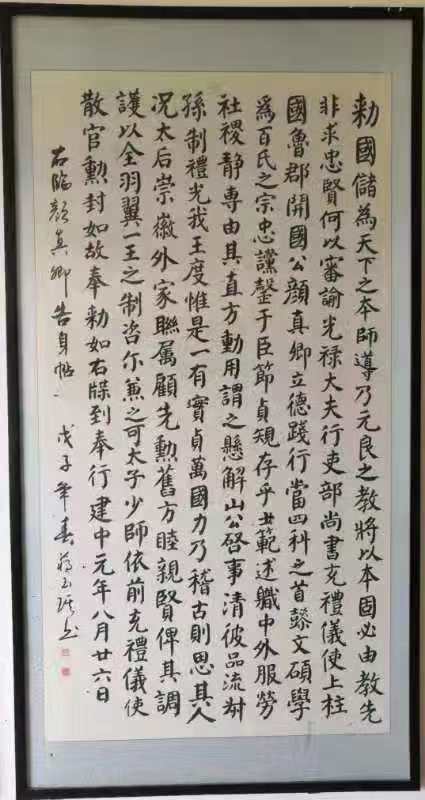 勅國儲為天下之本師導乃元良之教將以本固必由教先
非求忠賢何以審諭光禄大夫行吏部尚書充禮儀使上柱
國魯郡開國公顏真卿立德踐行當四科之首懿文碩學
為百氏之宗忠讜罄于臣節貞規存乎士範述職中外服勞
社稷静專由其直方動用謂之懸解山公啓事清彼品流叔
孫制禮光我王度惟是一有實貞萬國力乃稽古則思其人
況太后崇徽外家聯属顧先勲舊方睦親賢俾其調
護以全羽翼一王之制咨尔兼之可太子少師依前充禮儀使
散官勲封如故奉勅如右牒到奉行建中元年八月廿六日
右臨顏真卿告身帖 戊子年春蒋玉